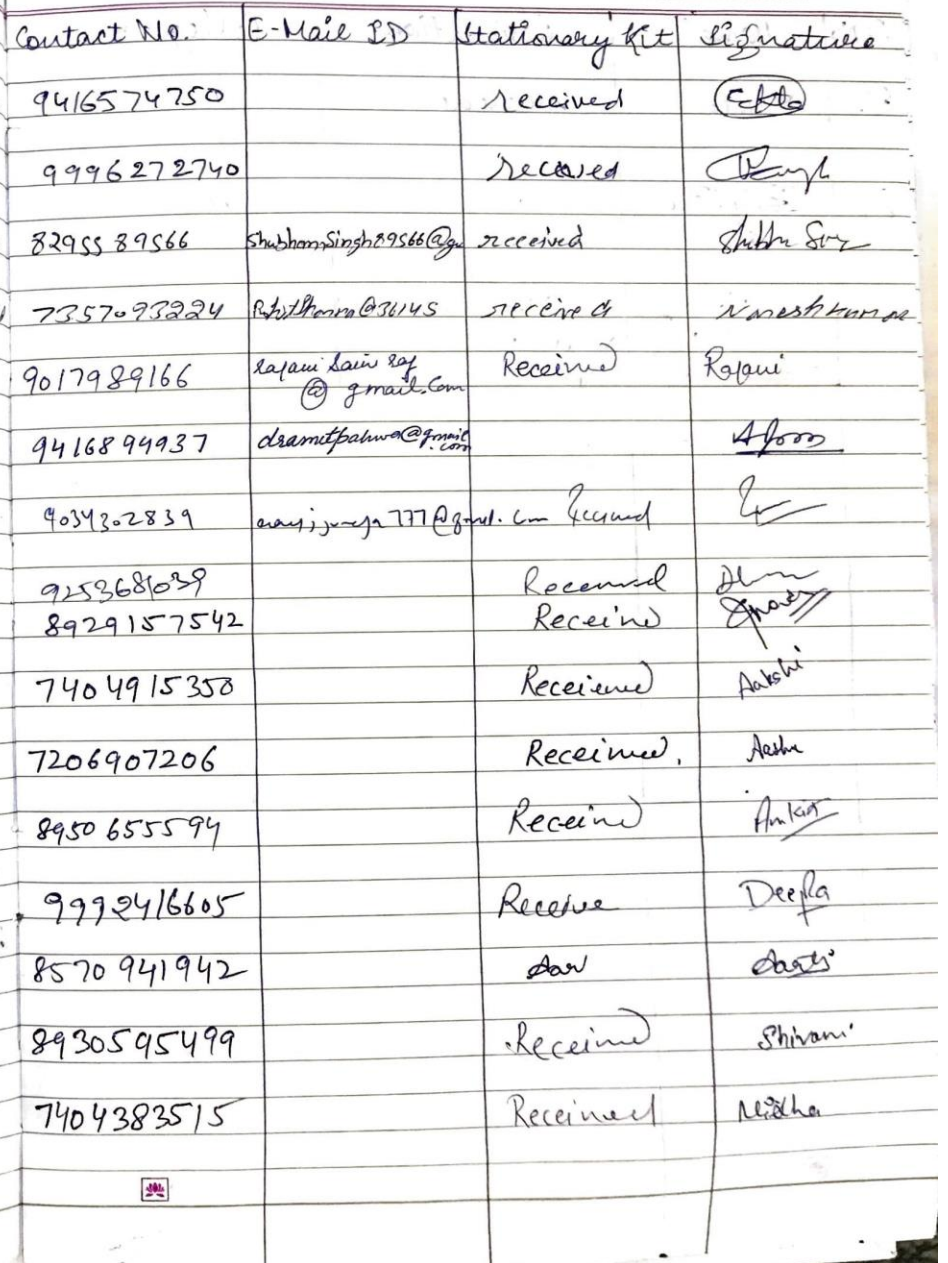 Contact No. E-Mail ID Stationary Kit Signature
9416574750 received Ekta
9996272740 received
8295589566 ShubhamSingh89566@g received
7357093224 received Naresh Kumar
9017989166 rajani Sain raj Received Rajani
@ gmail.com
9416894937 dramitpahwa@gmail
.com
9034302839 777@gmail.com Received
9253681039 Received
8929157542 Received
7404915350 Received Aakshi
7206907206 Received. Aashu
8950655594 Received Ankit
9992416605 Receive Deepa
8570941942 Aar Aarti
8930595499 Received Shivani
7404383515 Received